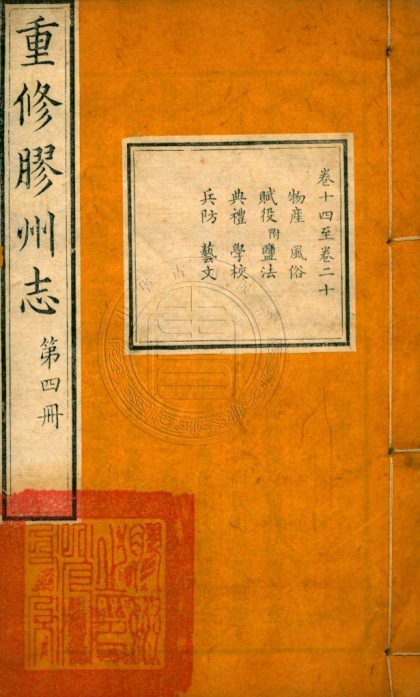 重修膠州志 第四冊
卷十四至卷二十
物產 風俗
賦役附鹽法
典禮 學校
兵防 藝文